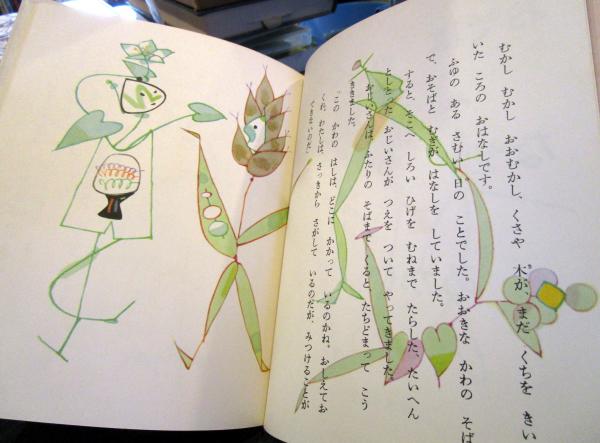 むかし むかし おおむかし、くさや 木が まだ くちを きい
いた ころの おはなしです。
ふゆの ある さむい 日の ことでした。おおきな かわの そば
で、おそばと むぎが はなしを していました。
すると、そこへ しろい ひげを むねまで たらした、たいへん
としとった おじいさんが つえを ついて やってきました。
おじいさんは、ふたりの そばまで くると、たちどまって こう
ききました。
「この かわの はしは、どこに かかって いるのかね。おしえてお
くれ。わたしは、さっきから さがして いるのだが、みつけることが
できないのだ」